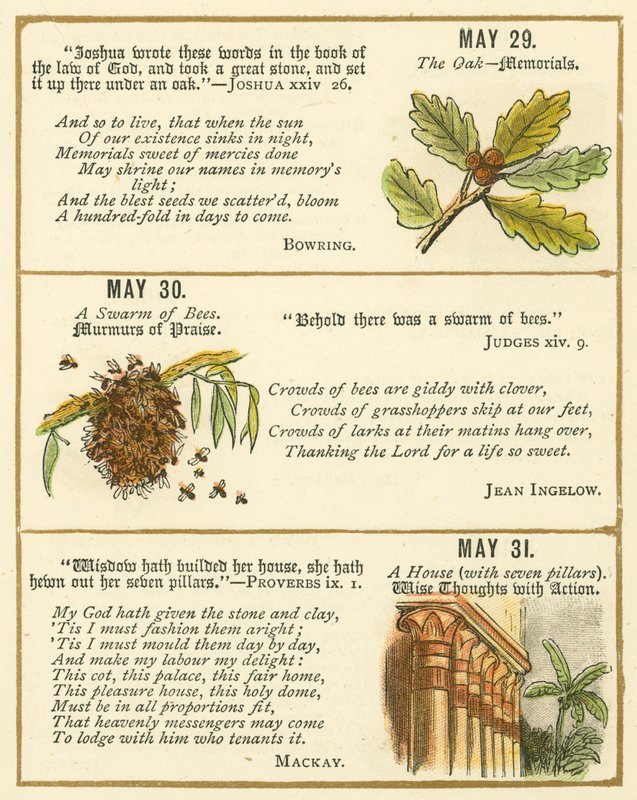 MAY 29.
The Oak—Memorials.
“Joshua wrote these words in the book of
the law of God, and took a great stone, and set
it up there under an oak.”—JOSHUA xxiv 26.
And so to live, that when the sun
Of our existence sinks in night,
Memorials sweet of mercies done
May shrine our names in memory's
light;
And the blest seeds we scatter'd, bloom
A hundred-fold in days to come.
BOWRING.
MAY 30.
A Swarm of Bees.
Murmurs of Praise.
“Behold there was a swarm of bees.”
JUDGES xiv. 9.
Crowds of bees are giddy with clover,
Crowds of grasshoppers skip at our feet,
Crowds of larks at their matins hang over,
Thanking the Lord for a life so sweet.
JEAN INGELOW.
MAY 31.
A House (with seven pillars).
Wise Thoughts with Action.
“Wisdow hath builded her house, she hath
hewn out her seven pillars.”—PROVERBS ix. 1.
My God hath given the stone and clay,
'Tis I must fashion them aright;
'Tis I must mould them day by day,
And make my labour my delight:
This cot, this palace, this fair home,
This pleasure house, this holy dome,
Must be in all proportions fit,
That heavenly messengers may come
To lodge with him who tenants it.
MACKAY.